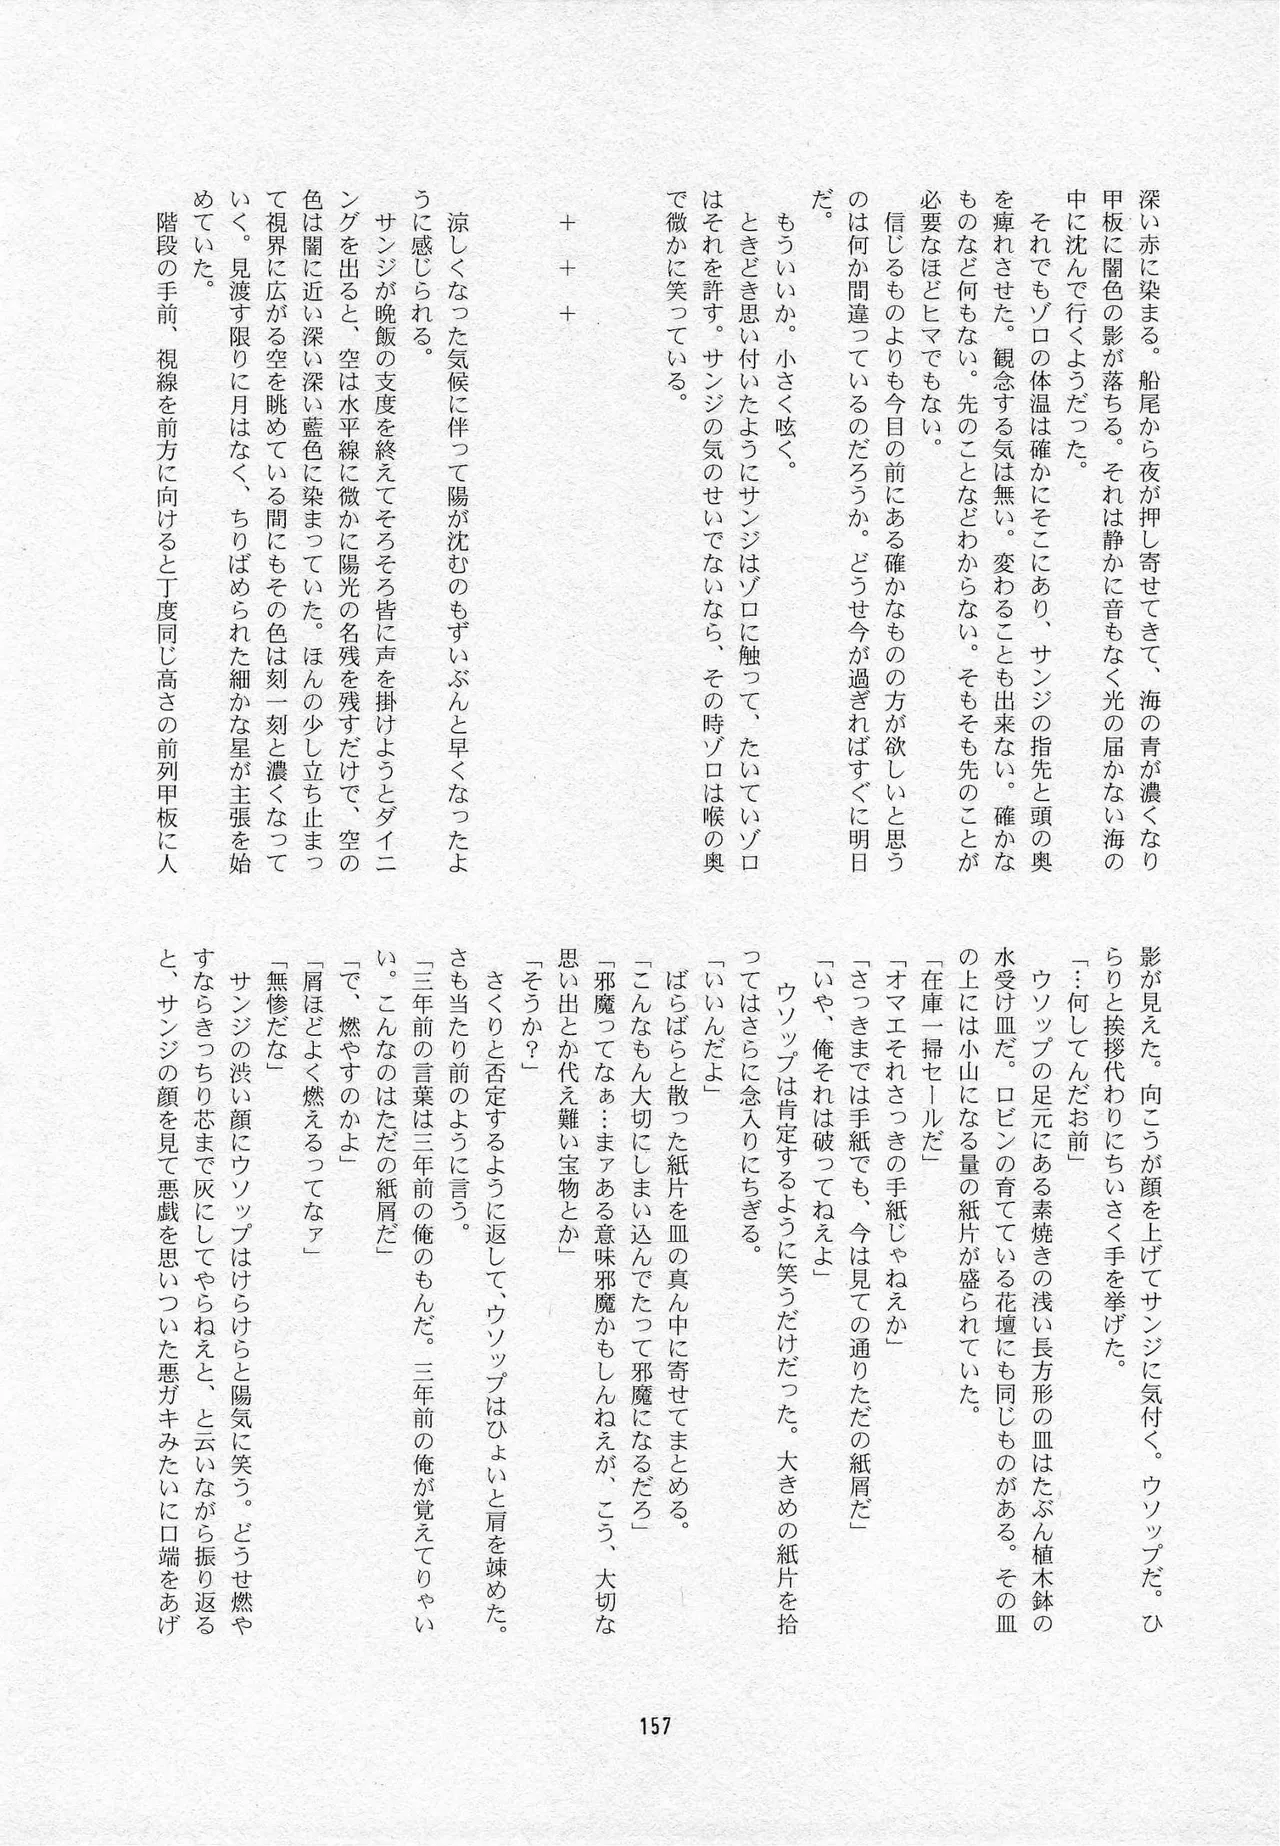 深い赤に染まる。船尾から夜が押し寄せてきて、海の青が濃くなり
甲板に闇色の影が落ちる。それは静かに音もなく光の届かない海の
中に沈んで行くようだった。
それでもゾロの体温は確かにそこにあり、サンジの指先と頭の奥
を痺れさせた。観念する気は無い。変わることも出来ない。確かな
ものなど何もない。先のことなどわからない。そもそも先のことが
必要なほどヒマでもない。
信じるものよりも今目の前にある確かなものの方が欲しいと思う
のは何か間違っているのだろうか。どうせ今が過ぎればすぐに明日
だ。
もういいか。小さく呟く。
ときどき思い付いたようにサンジはゾロに触って、たいていゾロ
はそれを許す。サンジの気のせいでないなら、その時ゾロは喉の奥
で微かに笑っている。
＋　＋　＋
涼しくなった気候に伴って陽が沈むのもずいぶんと早くなったよ
うに感じられる。
サンジが晩飯の支度を終えてそろそろ皆に声を掛けようとダイニ
ングを出ると、空は水平線に微かに陽光の名残を残すだけで、空の
色は闇に近い深い深い藍色に染まっていた。ほんの少し立ち止まっ
て視界に広がる空を眺めている間にもその色は刻一刻と濃くなって
いく。見渡す限りに月はなく、ちりばめられた細かな星が主張を始
めていた。
階段の手前、視線を前方に向けると丁度同じ高さの前列甲板に人
影が見えた。向こうが顔を上げてサンジに気付く。ウソップだ。ひ
らりと挨拶代わりにちいさく手を挙げた。
「…何してんだお前」
ウソップの足元にある素焼きの浅い長方形の皿はたぶん植木鉢の
水受け皿だ。ロビンの育てている花壇にも同じものがある。その皿
の上には小山になる量の紙片が盛られていた。
「在庫一掃セールだ」
「オマエそれさっきの手紙じゃねえか」
「さっきまでは手紙でも、今は見ての通りただの紙屑だ」
「いや、俺それは破ってねえよ」
ウソップは肯定するように笑うだけだった。大きめの紙片を拾
ってはさらに念入りにちぎる。
「いいんだよ」
ばらばらと散った紙片を皿の真ん中に寄せてまとめる。
「こんなもん大切にしまい込んでたって邪魔になるだろ」
「邪魔ってなぁ…まァある意味邪魔かもしんねえが、こう、大切な
思い出とか代え難い宝物とか」
「そうか？」
さくりと否定するように返して、ウソップはひょいと肩を竦めた。
さも当たり前のように言う。
「三年前の言葉は三年前の俺のもんだ。三年前の俺が覚えてりゃい
い。こんなのはただの紙屑だ」
「で、燃やすのかよ」
「屑ほどよく燃えるってなァ」
「無惨だな」
サンジの渋い顔にウソップはけらけらと陽気に笑う。どうせ燃や
すならきっちり芯まで灰にしてやらねえと、と云いながら振り返る
と、サンジの顔を見て悪戯を思いついた悪ガキみたいに口端をあげ
157